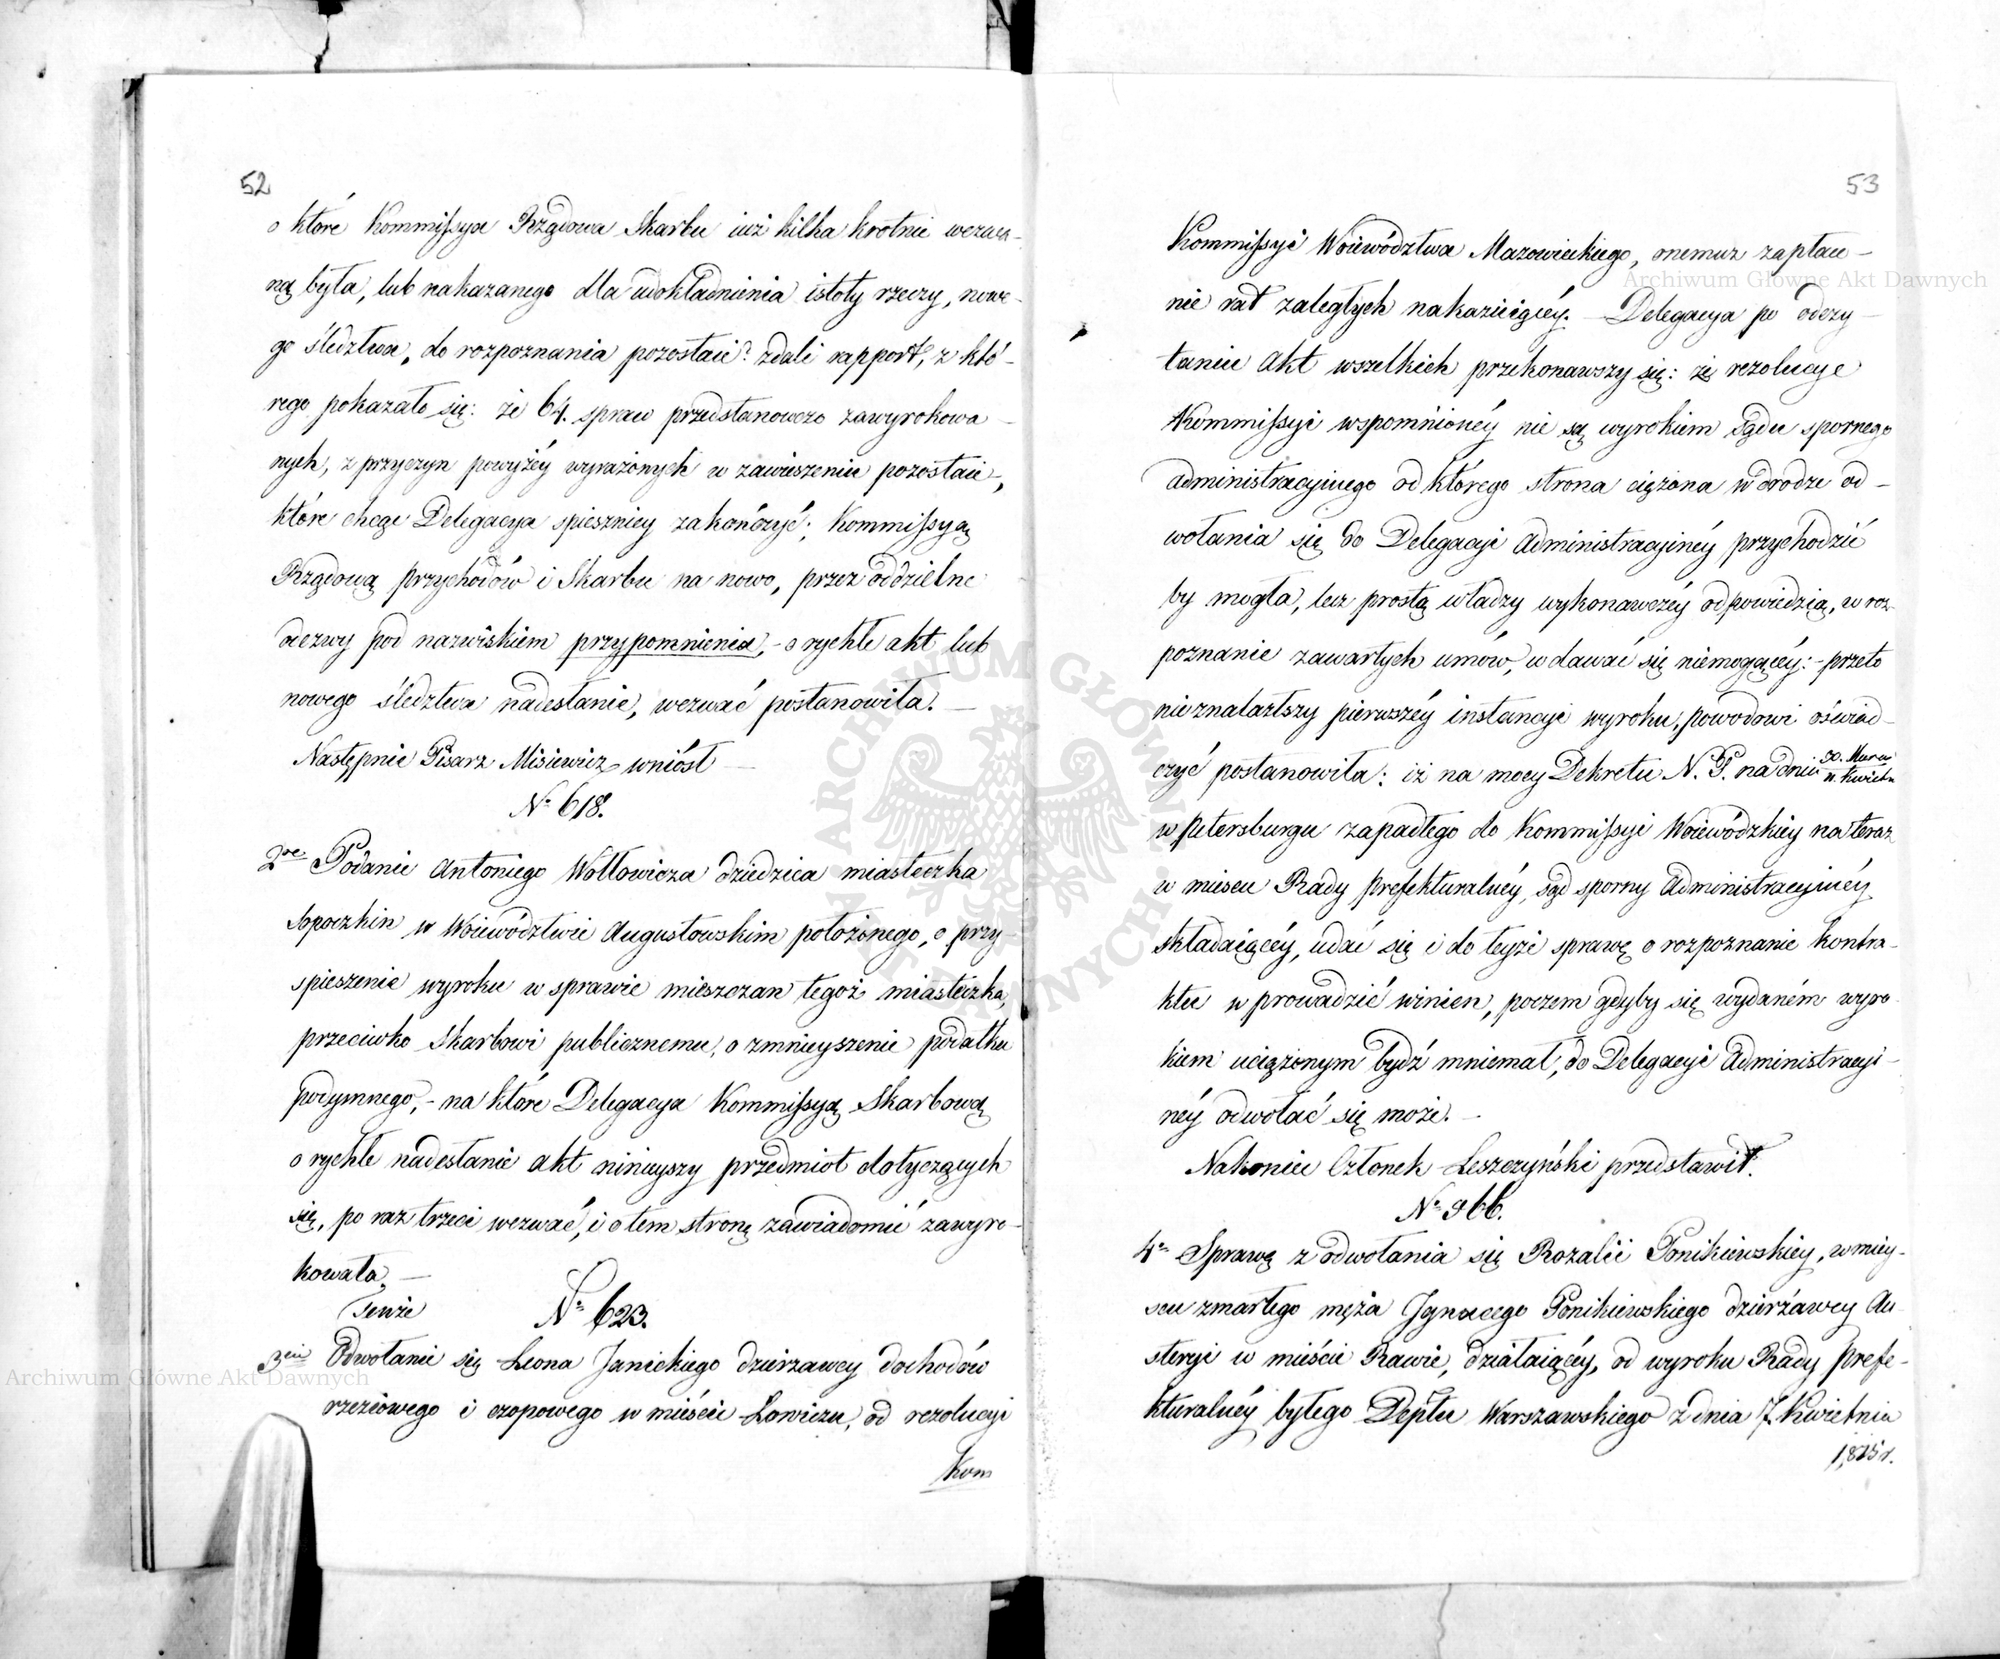 52
o które Kommissya Rządowa Skarbu iuż kilka krotnie wezwa-
ną była, lub nakazanego dla udokładnienia istoty rzeczy, nowe-
go śledztwa, do rozpoznania pozostaie? zdali rapport, z któ-
rego pokazało się: że 64. spraw przedstanowczo zawyrokowa-
nych, z przyczyn powyżéy wyrażonych w zawieszeniu pozostaie,
które chcąc Delegacya spieszniey zakończyć; Kommissyą
Rządową przychodów i Skarbu na nowo, przez oddzielne
odezwy pod nazwiskiem przypomnienia, - o rychłe akt lub
nowego śledztwa nadesłanie, wezwać postanowiła. —
Następnie Pisarz Misiewicz wniósł —
No 618.
2re Podanie Antoniego Wołłowicza dziedzica miasteczka
Sopoczkin w Woiewództwie Augustowskim położonego, o przy-
spieszenie wyroku w sprawie mieszczan tegoż miasteczka,
przeciwko Skarbowi publicznemu, o zmnieyszenie podatku
podymnego, - na które Delegacya Kommissyą Skarbową
o rychłe nadesłanie akt ninieyszy przedmiot dotyczących
się, po raz trzeci wezwać, i o tem stronę zawiadomić zawyro-
kowała. —
Tenże No 623.
3cie Odwołanie się Leona Janickiego dzierzawcy dochodów
rzeziowego i czopowego w mieście Łowiczu, od rezolucyi
Kom
53
Kommissyi Woiewództwa Mazowieckiego, onemuz zapłace-
nie rat zaległych nakazuiącéy. — Delegacya po odczy-
taniu akt wszelkich przekonawszy się: że rezolucye
Kommissyi wspomnionéy nie są wyrokiem Sądu spornego
administracyinego od którego strona ciążona w drodze od-
wołania się do Delegacyi Administracyinéy przychodzić
by mogła, lecz prostą władzy wykonawczéy odpowiedzią, w roz-
poznanie zawartych umów, wdawać się niemogącéy: - przeto
nieznalazłszy pierwszéy instancyi wyroku, powodowi oświad-
czyć postanowiła: iż na mocy Dekretu N. P. na dniu 30. Marca
11. Kwietn
w Petersburgu zapadłego do Kommissyi Woiewódzkiey na teraz
w miescu Rady Prefekturalnéy, sąd sporny Administracyinéy
składaiącéy, udać się i do teyże sprawę o rozpoznanie kontra-
ktu wprowadzić winien, poczem gdyby się wydaném wyro-
kiem uciążonym bydź mniemał, do Delegacyi Administracyi-
néy odwołać się może. —
Nakoniec Członek Leszczyński przedstawił.
No 966.
4e Sprawę z odwołania się Rozalii Ponikiewskiey, w miey-
scu zmarłego męża Ignacego Ponikiewskiego dzierżawcy Au-
steryi w mieście Rawie, działaiącéy, od wyroku Rady Prefe-
kturalnéy byłego Deptu Warszawskiego z dnia 7. Kwietnia
1815 r.
Archiwum Główne Akt Dawnych
Archiwum Główne Akt Dawnych
ARCHIWUM GŁÓWNE AKT DAWNYCH